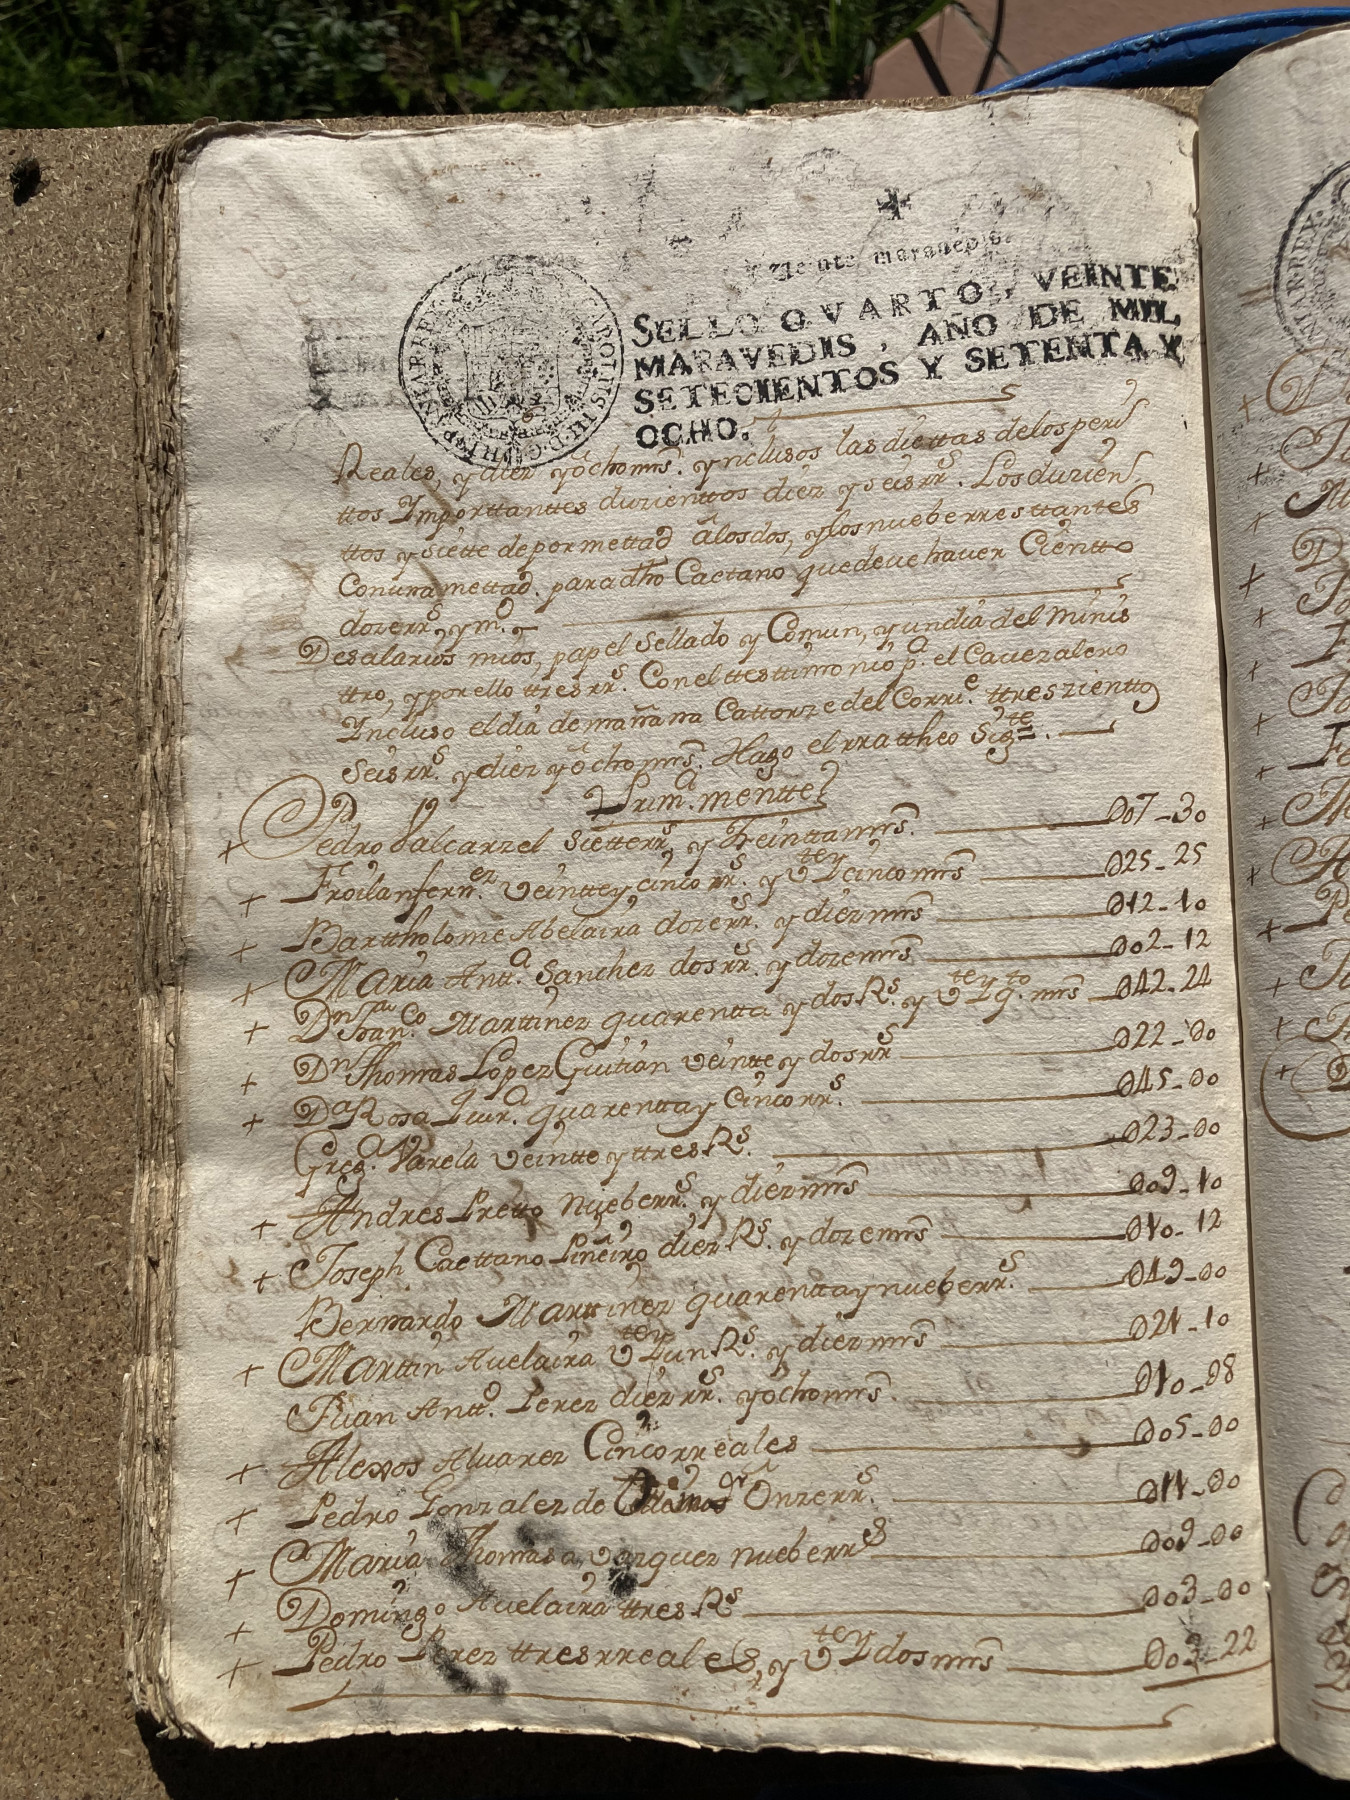 Veinte maravedis.
SELLO QVARTO, VEINTE
MARAVEDIS, AÑO DE MIL
SETECIENTOS Y SETENTA Y
OCHO.
CAROLUS III D G HISPANIAR REX
Reales, y diez yôcho mrs. ynclusos las diettas delos peri
ttos Ymporttanttes duzienttos diez y seis rrs. Los duzien
ttos y siette de por mettad âlos dos, y los nueberresttantes
Con una mettad. para dho Caetano que deve haver Cientto
doze rrs, y mo.
De salarios mios, papel Sellado y Comun, y un dia del Minis
ttro, y por ello ttres rrs. Con el ttesttimonio pa. el Cavezalero
Incluso el dia de mañana Cattorze del Corrie. ttreszienttos
Seis rrs. y diez yôcho mrs. Hago el rrattheo Sigte=.
Prima.mentte
+ Pedro Valcarzel Siette rrs, y Treintta mrs. 007-30
+ Froilan fernez. Veintte y cinco rrs. y Vtey cinco mrs 025-25
+ Barttholome Abelaira doze rrs. y diez mrs 012-10
+ Maria Antta. Sanchez dos rrs. y doze mrs 002-12
+ Dn Franco. Marttinez quarentta y dos Rs. y Vtey qto. mrs 042-24
+ Dn Thomas Lopez Guitian veintte y dos rrs 022-00
+ Da Rosa quarentta y Cinco rrs. 045-00
Grega. Varela veintte y ttres Rs. 023-00
+ Andres Pretto Nueberrs. y diez mrs 009-10
+ Joseph Caettano Piñeiro diez Rs. y doze mrs 010-12
Bernardo Marttinez quarentta y nueberrs. 049-00
+ Marttin Avelaira Vtey un Rs. y diez mrs 021-10
Juan Antto. Perez diez rrs. yôcho mrs. 010-08
+ Alexos Alvarez Cinco rreales 005-00
+ Pedro Gonzalez de Onze rrs. 011-00
+ Maria Thomasa Vazquez nueberrs 009-00
+ Domingo Avelaira ttres Rs 003-00
+ Pedro Perez ttres rreales, y Vtey dos mrs 003-22